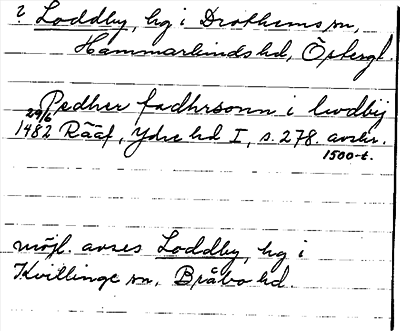 ? Loddby, hg i Drothems sn,
Hammarkinds hd, Östergl.
Pedher fadhrsonn i lwdbij
29/6
1482 Rääf, Ydre hd I, s. 278. avskr.
1500-t.
möjl. avses Loddby, hg i
Kvillinge sn, Bråbo hd.